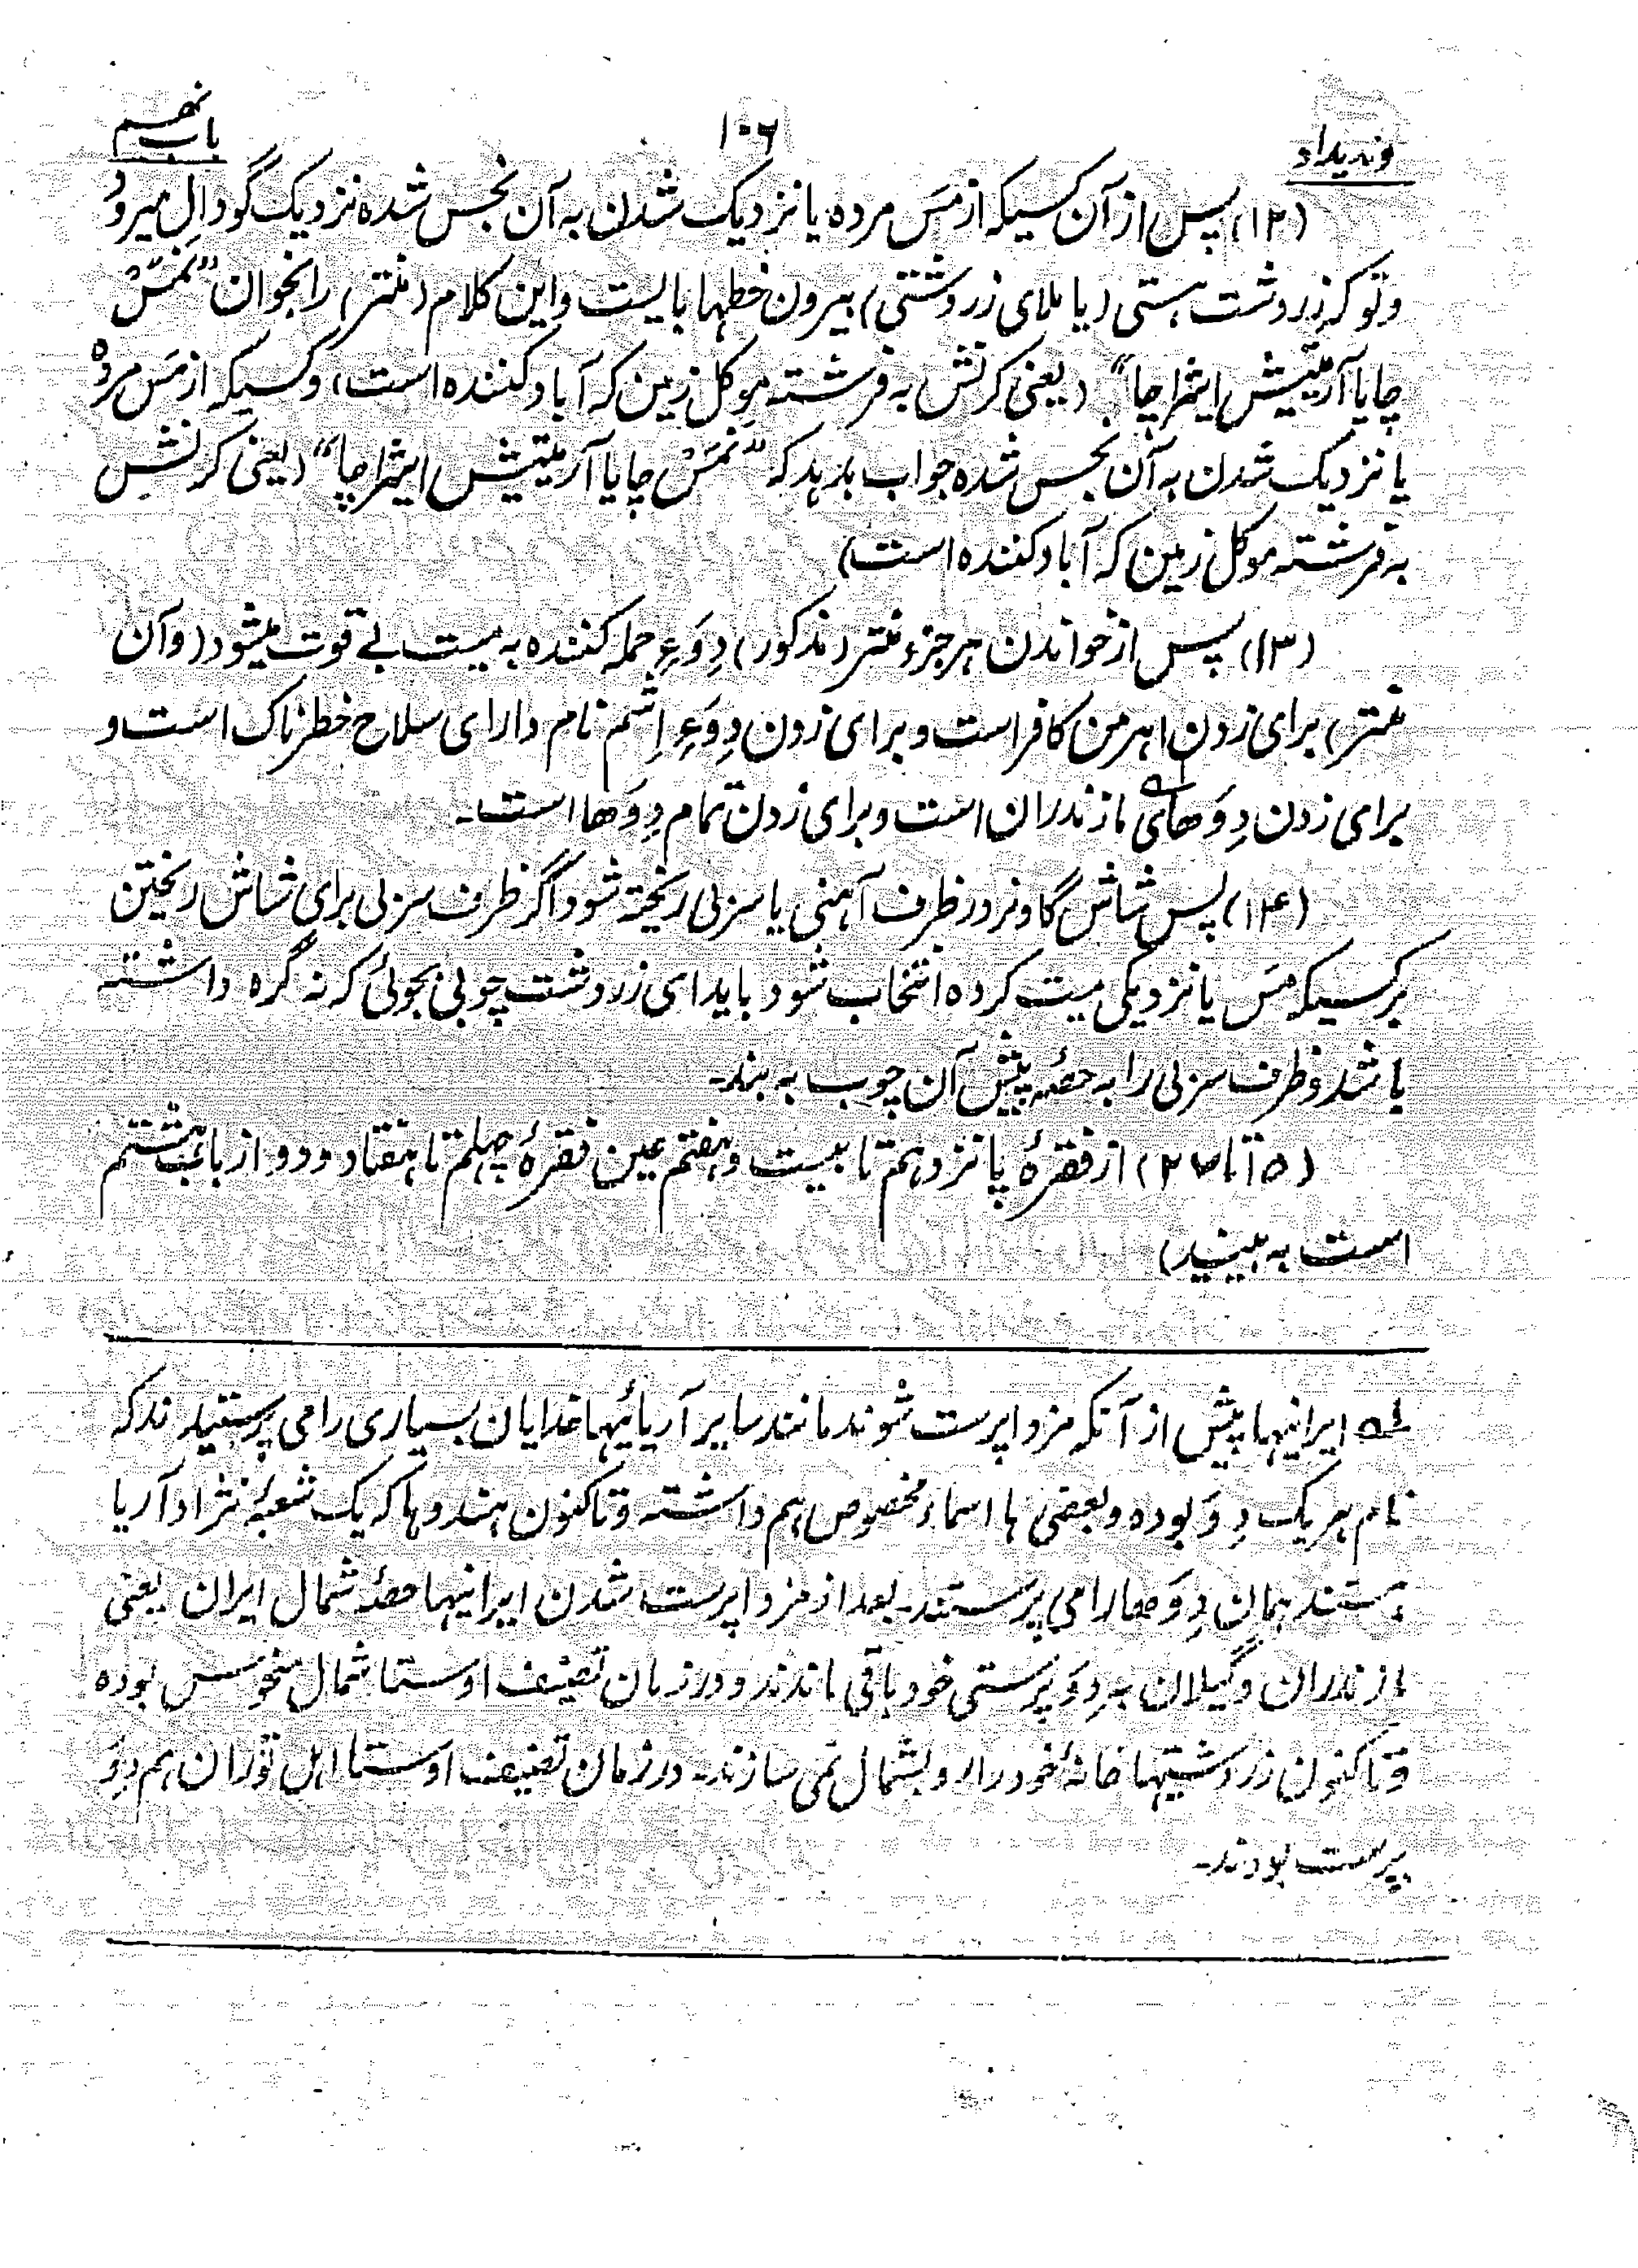 وندیداد
۱۰۶
باب نهم
(۱۲) پس از آن کسیکه از مَس مرده یا نزدیک شدن به آن نجس شده نزدیک گودال میرود
و تو که زردشت هستی (یا ملای زردشتی) بیرون خطها بایست و این کلام (منتر) را بخوان ”نمَسْ
چایا آرمتیش ایثراچا“ (یعنی کرنش به فرشته موکل زمین که آباد کننده است) و کسیکه از مَس مرده
یا نزدیک شدن به آن نجس شده جواب بدهد که ”نمَسْ چایا آرمتیش ایثراچا“ (یعنی کرنش
به فرشته موکل زمین که آباد کننده است)
(۱۳) پس از خواندن هر جزء منتر (مذکور) دِوَءِ حمله کننده به میت بے قوت میشود (و آن
منتر) برای زدن اهرمن کافر است و برای زدن دِوَءِ اِشم نام دارای سلاح خطرناک است و
برای زدن دِوَهای مازندران است و برای زدن تمام دِوَها است۔
(۱۴) پس شاش گاو نر در ظرف آهنی یا سربی ریخته شود اگر ظرف سربی برای شاش ریختن
بر کسیکه مَس یا نزدیکی میت کرده انتخاب شود باید ای زردشت چوبی بجوئی که نه گره داشته
باشد و ظرف سربی را به حصهٔ پیش آن چوب به بند۔
(۱۵ تا ۲۷) از فقرهٔ پانزدهم تا بیست و هفتم عین فقرهٔ چهلم تا هفتاد و دو از باب هشتم
است به بینید)
۱ه ایرانیها پیش از آنکه مزداپرست شوند مانند سایر آریائیها خدایان بسیاری را می پرستیدند که
نام هر یک دِوَ بوده و بعضی ها اسماء مخصوص هم داشته و تاکنون هندوها که یک شعبهٔ نژاد آریا
هستند همان دِوَها را می پرستند۔ بعد از مزداپرست شدن ایرانیها حصهٔ شمال ایران یعنی
مازندران و گیلان به دِوَپرستی خود باقی ماندند و در زمان تصنیف اوستا شمال منحوس بوده
و تاکنون زردشتیها خانهٔ خود را رو بشمال نمی سازند۔ در زمان تصنیف اوستا اهل توران هم دِوَ
پرست بودند۔